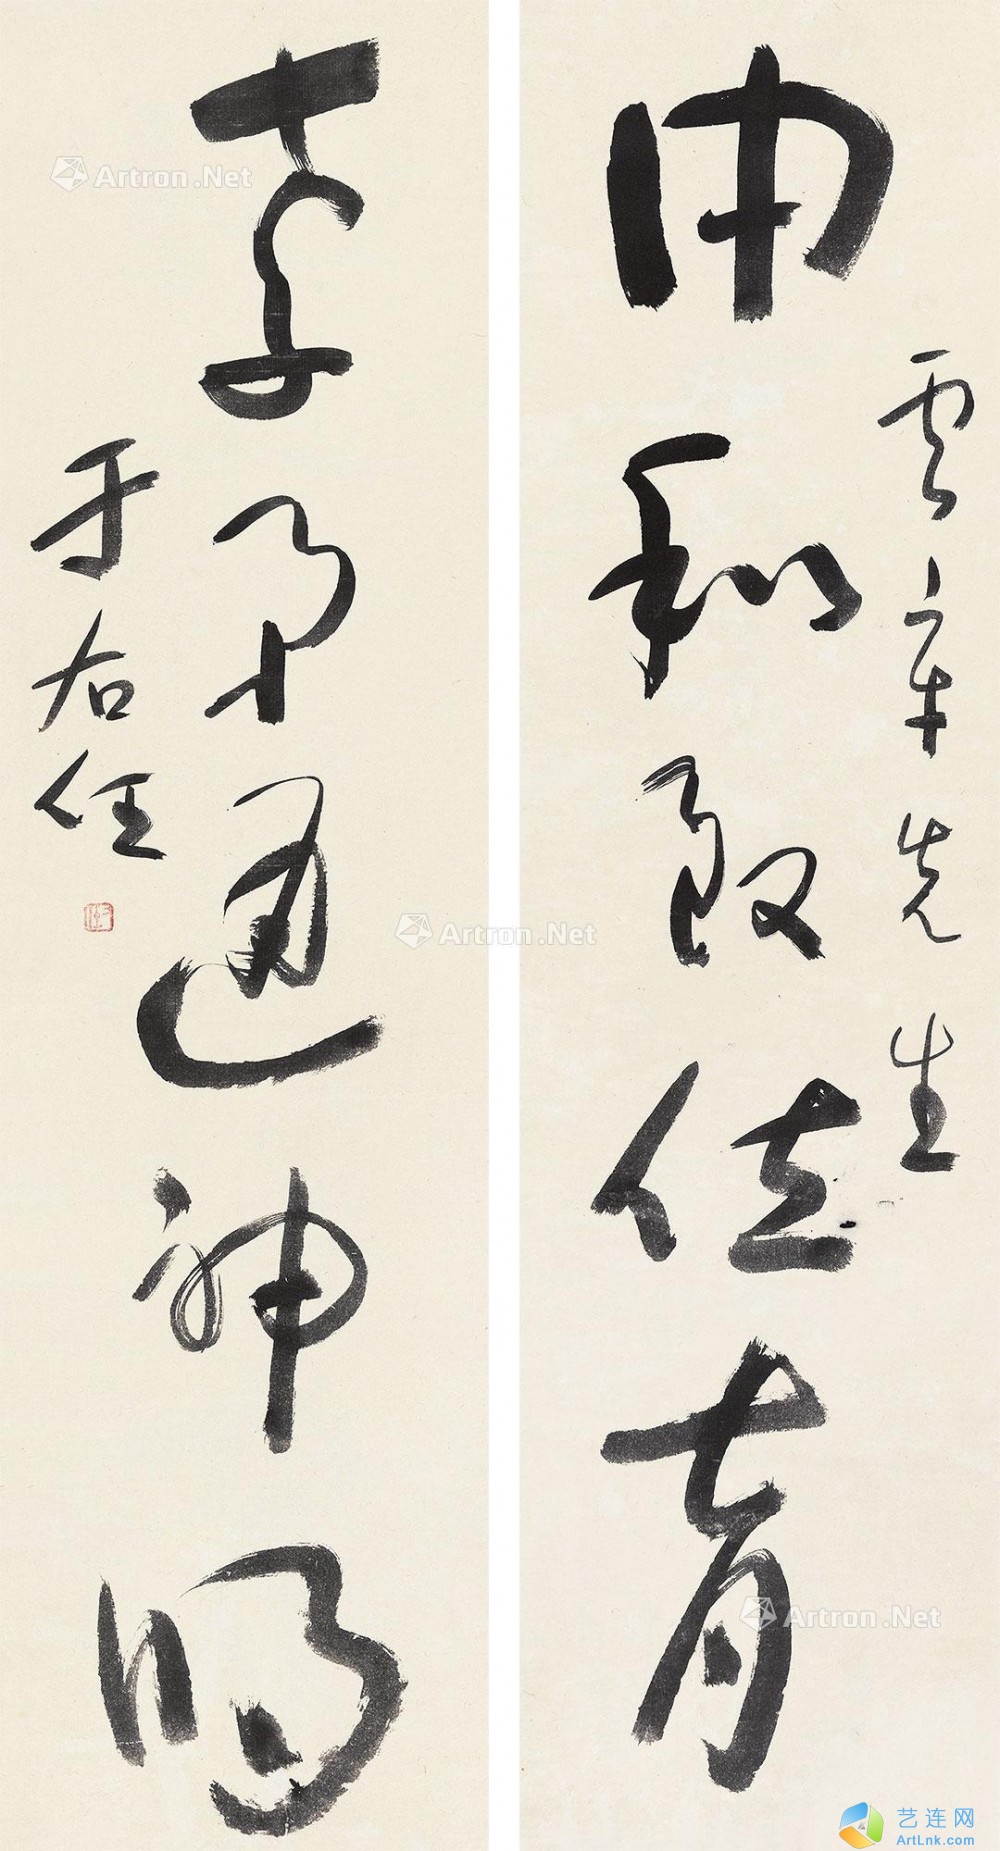 雲章先生
中和致位育
孝弟通神明
于右任
Artron.Net
Artron.Net
Artron.Net
艺连网
ArtLnk.com